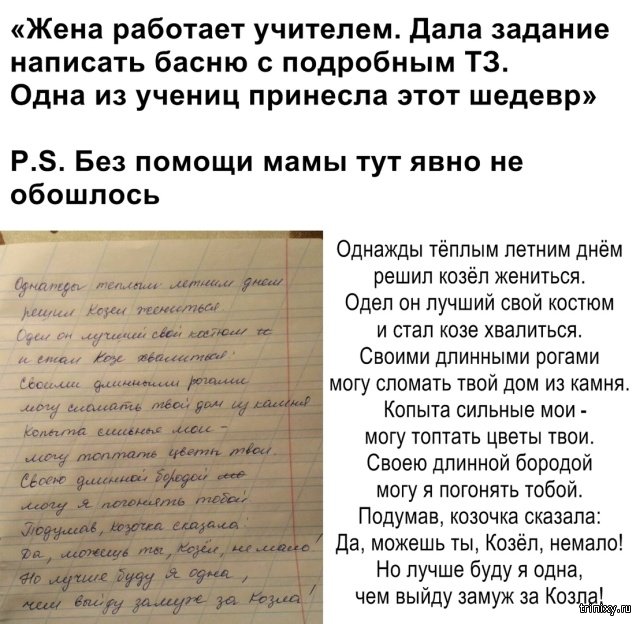 «Жена работает учителем. Дала задание
написать басню с подробным ТЗ.
Одна из учениц принесла этот шедевр»
P.S. Без помощи мамы тут явно не
обошлось
Однажды теплым летним днем
решил Козел жениться
Одел он лучший свой костюм
и стал Козе хвалиться:
Своими длинными рогами
могу сломать твой дом из камня
Копыта сильные мои -
могу топтать цветы твои.
Своею длинной бородой
могу я погонять тобой
Подумав, козочка сказала:
Да, можешь ты, Козёл, немало!
Но лучше буду я одна,
чем выйду замуж за Козла!
Однажды тёплым летним днём
решил козёл жениться.
Одел он лучший свой костюм
и стал козе хвалиться.
Своими длинными рогами
могу сломать твой дом из камня.
Копыта сильные мои -
могу топтать цветы твои.
Своею длинной бородой
могу я погонять тобой.
Подумав, козочка сказала:
Да, можешь ты, Козёл, немало!
Но лучше буду я одна,
чем выйду замуж за Козла!
trinixy.ru